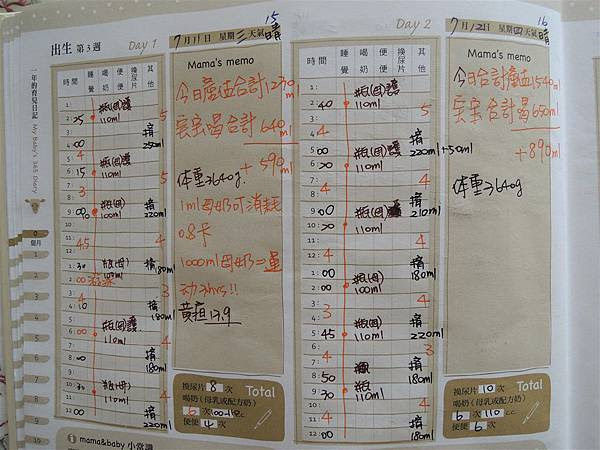 出生 第3週
Day 1
時間 睡覺 喝奶 便便 換尿片 其他
1:
2: 25
瓶(母)護
110ml
5
3:
4: 00
擠
250ml
5: 4
6: 15
瓶(母)護
110ml
5
7: 3
8:
9: 00
瓶(母)
100ml
擠
220ml
10:
11:
12: 45
4
1: 30
瓶(母)
擠
180ml
2: 00
3:
4: 10
擠
180ml
5:
瓶(母)護
110ml
4
擠
180ml
瓶(母)
110ml
30
12: 00
擠
220ml
7月11日 星期三 天氣晴
15
Mama's memo
今日產值合計1230ml
寶寶喝合計 640ml
+ 590ml
体重3640g.
1ml母奶可消耗
0.8卡
1000ml母奶=運
動3hrs!!
黃疸 13.9
換尿片 8 次
Total
喝奶(母乳或配方奶)
6 次 100~110cc
便便 4 次
Day 2
時間 睡覺 喝奶 便便 換尿片 其他
1:
2: 40
瓶(母)護
110ml
5
3:
4: 4
5: 00
擠
220ml+50ml
6: 30
瓶(母)護
110ml
7: 4
4
9: 00
瓶(母)
擠
210ml
10: 30
110ml
11: 4
4
1: 00
瓶(母)
擠
2: 00
100ml
180ml
3: 3
4
5: 45
瓶(母)護
110ml
擠
220ml
7: 4
3
8: 50
擠
9: 30
瓶
110ml
180ml
11: 4
4
12: 00
擠
180ml
7月12日 星期四 天氣晴
16
Mama's memo
今日合計產值1540ml
寶寶合計喝650ml
+890ml
体重3640g
換尿片 10 次
Total
喝奶(母乳或配方奶)
6 次 110 cc
便便 6 次
一年的育兒日記
My Baby's 365 Diary
0
個月
1
2
3
4
5
6
7
8
9
10
mama&baby 小常識